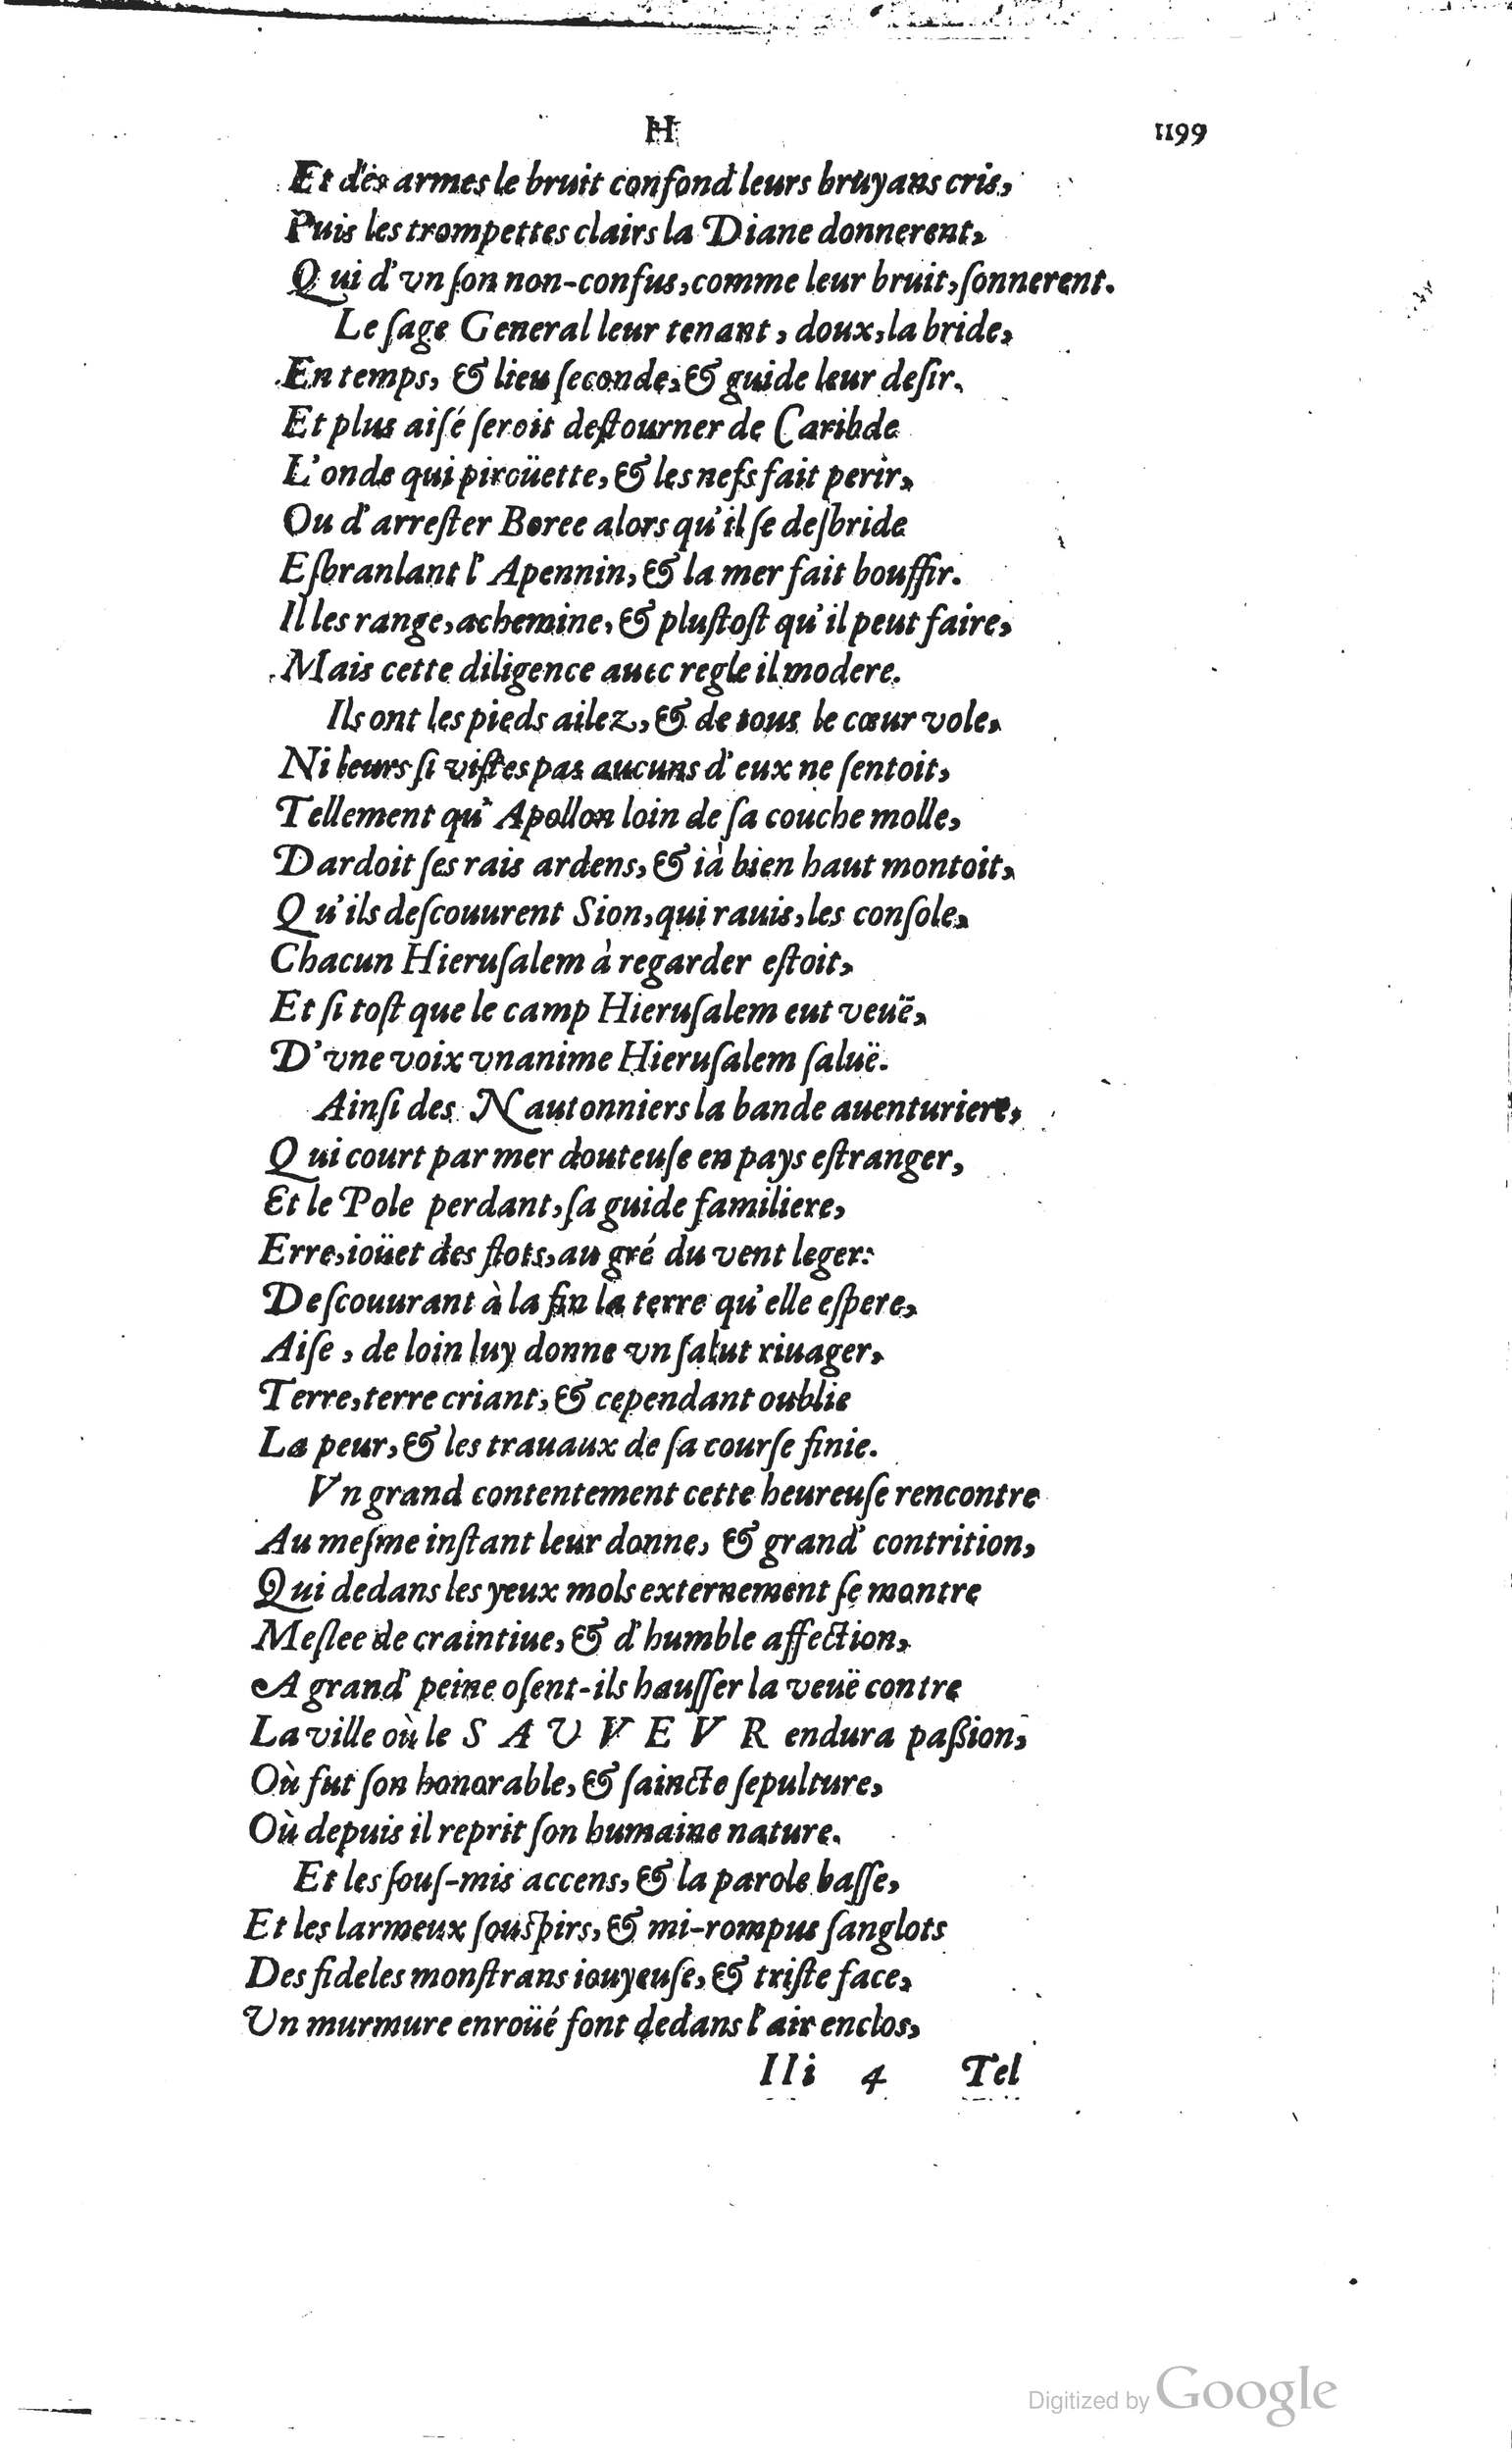 H 1199
Et des armes le bruit confond leurs bruyans cris,
Puis les trompettes clairs la Diane donnerent,
Qui d'vn ſon non-confus, comme leur bruit, ſonnerent.
Le ſage General leur tenant, doux, la bride,
En temps, & lieu ſeconde, & guide leur deſir,
Et plus aiſé ſeroit deſtourner de Caribde
L'onde qui piroüette, & les nefs fait perir,
Ou d'arreſter Boree alors qu'il ſe deſbride
Eſbranlant l'Apennin, & la mer fait bouffir.
Il les range, achemine, & pluſtoſt qu'il peut faire,
Mais cette diligence auec regle il modere.
Ils ont les pieds ailez, & de tous le cœur vole,
Ni leurs ſi viſtes pas aucuns d'eux ne ſentoit,
Tellement qu'Apollon loin de ſa couche molle,
Dardoit ſes rais ardens, & ià bien haut montoit,
Qu'ils deſcouurent Sion, qui rauis, les conſole,
Chacun Hieruſalem à regarder eſtoit,
Et ſi toſt que le camp Hieruſalem eut veuë,
D'vne voix vnanime Hieruſalem ſaluë.
Ainſi des Nautonniers la bande auenturiere,
Qui court par mer douteuſe en pays eſtranger,
Et le Pole perdant, ſa guide familiere,
Erre, ioüet des flots, au gré du vent leger:
Deſcouurant à la fin la terre qu'elle eſpere,
Aiſe, de loin luy donne vn ſalut riuager,
Terre, terre criant, & cependant oublie
La peur, & les trauaux de ſa courſe finie.
Vn grand contentement cette heureuſe rencontre
Au meſme inſtant leur donne, & grand' contrition,
Qui dedans les yeux mols externement ſe montre
Meſlee de craintiue, & d'humble affection,
A grand' peine oſent-ils hauſſer la veuë contre
La ville où le SAUVEVR endura paßion,
Où fut ſon honorable, & ſaincte ſepulture,
Où depuis il reprit ſon humaine nature.
Et les ſouſ-mis accens, & la parole baſſe,
Et les larmeux ſouſpirs, & mi-rompus ſanglots
Des fideles monſtrans iouyeuſe, & triſte face,
Un murmure enroüé font dedans l'air enclos,
IIi 4 Tel
Digitized by Google